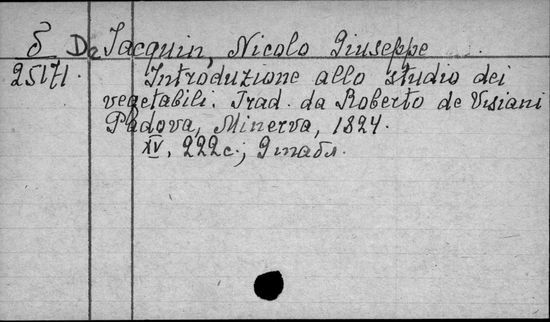 δ De Jacquin, Nicolo Giuseppe
25171. Introduzione allo studio dei
vegetabili. Trad. da Roberto de Visiani
Padova, Minerva, 1824.
XV, 222c.; 9 табл.